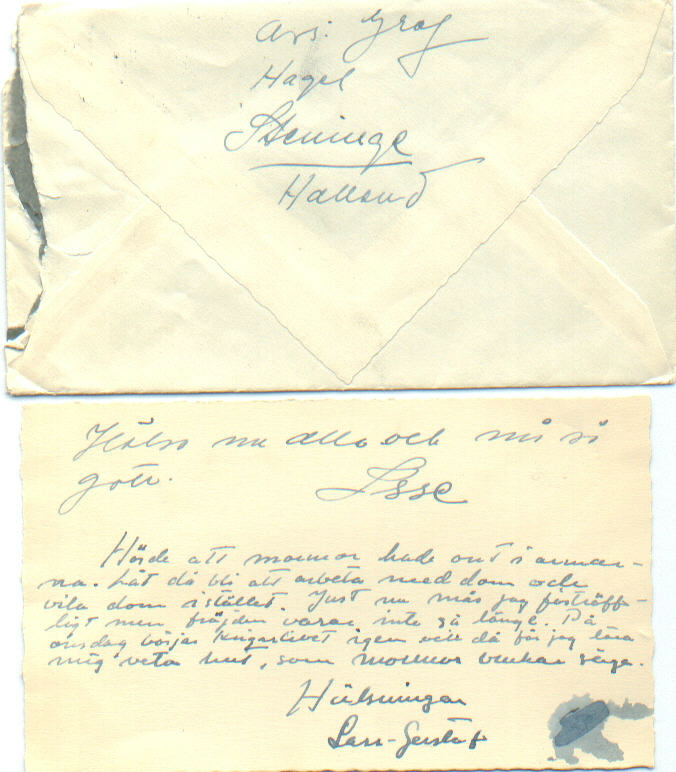 Avs: Graf
Hagel
Steninge
Halland
Hälsa nu alla och må så
gott.
Lasse
Hörde att mormor hade ont i armar-
na. Låt då bli att arbeta med dom och
vila dom istället. Just nu mås jag förträff-
ligt men fröjden varar inte så länge. På
onsdag börjas kngarlivet igen och då får jag lära
mig veta hut, som mormor brukar säga.
Hälsningar
Lars-Gustaf